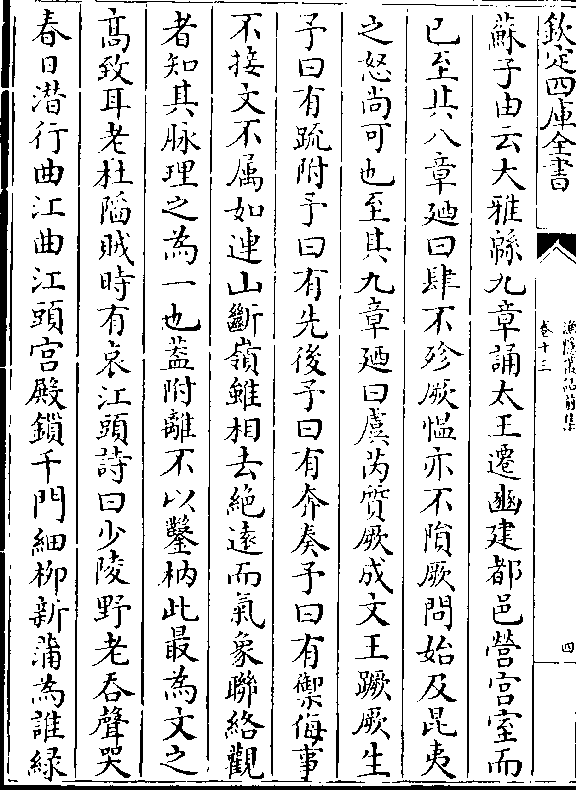 欽定四庫全書
漁隱叢話前集
卷十三
四
蘇子由云大雅緜九章誦太王遷豳建都邑營宫室而
已至其八章廼曰肆不殄厥愠亦不隕厥問始及昆夷
之怒尚可也至其九章廼曰虞芮質厥成文王蹶厥生
予曰有䟽附予曰有先後予曰有奔奏予曰有禦侮事
不接文不属如連山斷嶺雖相去絶遠而氣象聯絡觀
者知其脉理之為一也葢附離不以鑿枘此最為文之
髙致耳老杜陷賊時有哀江頭詩曰少陵野老吞聲哭
春日潛行曲江曲江頭宫殿鎖千門細柳新蒲為誰緑